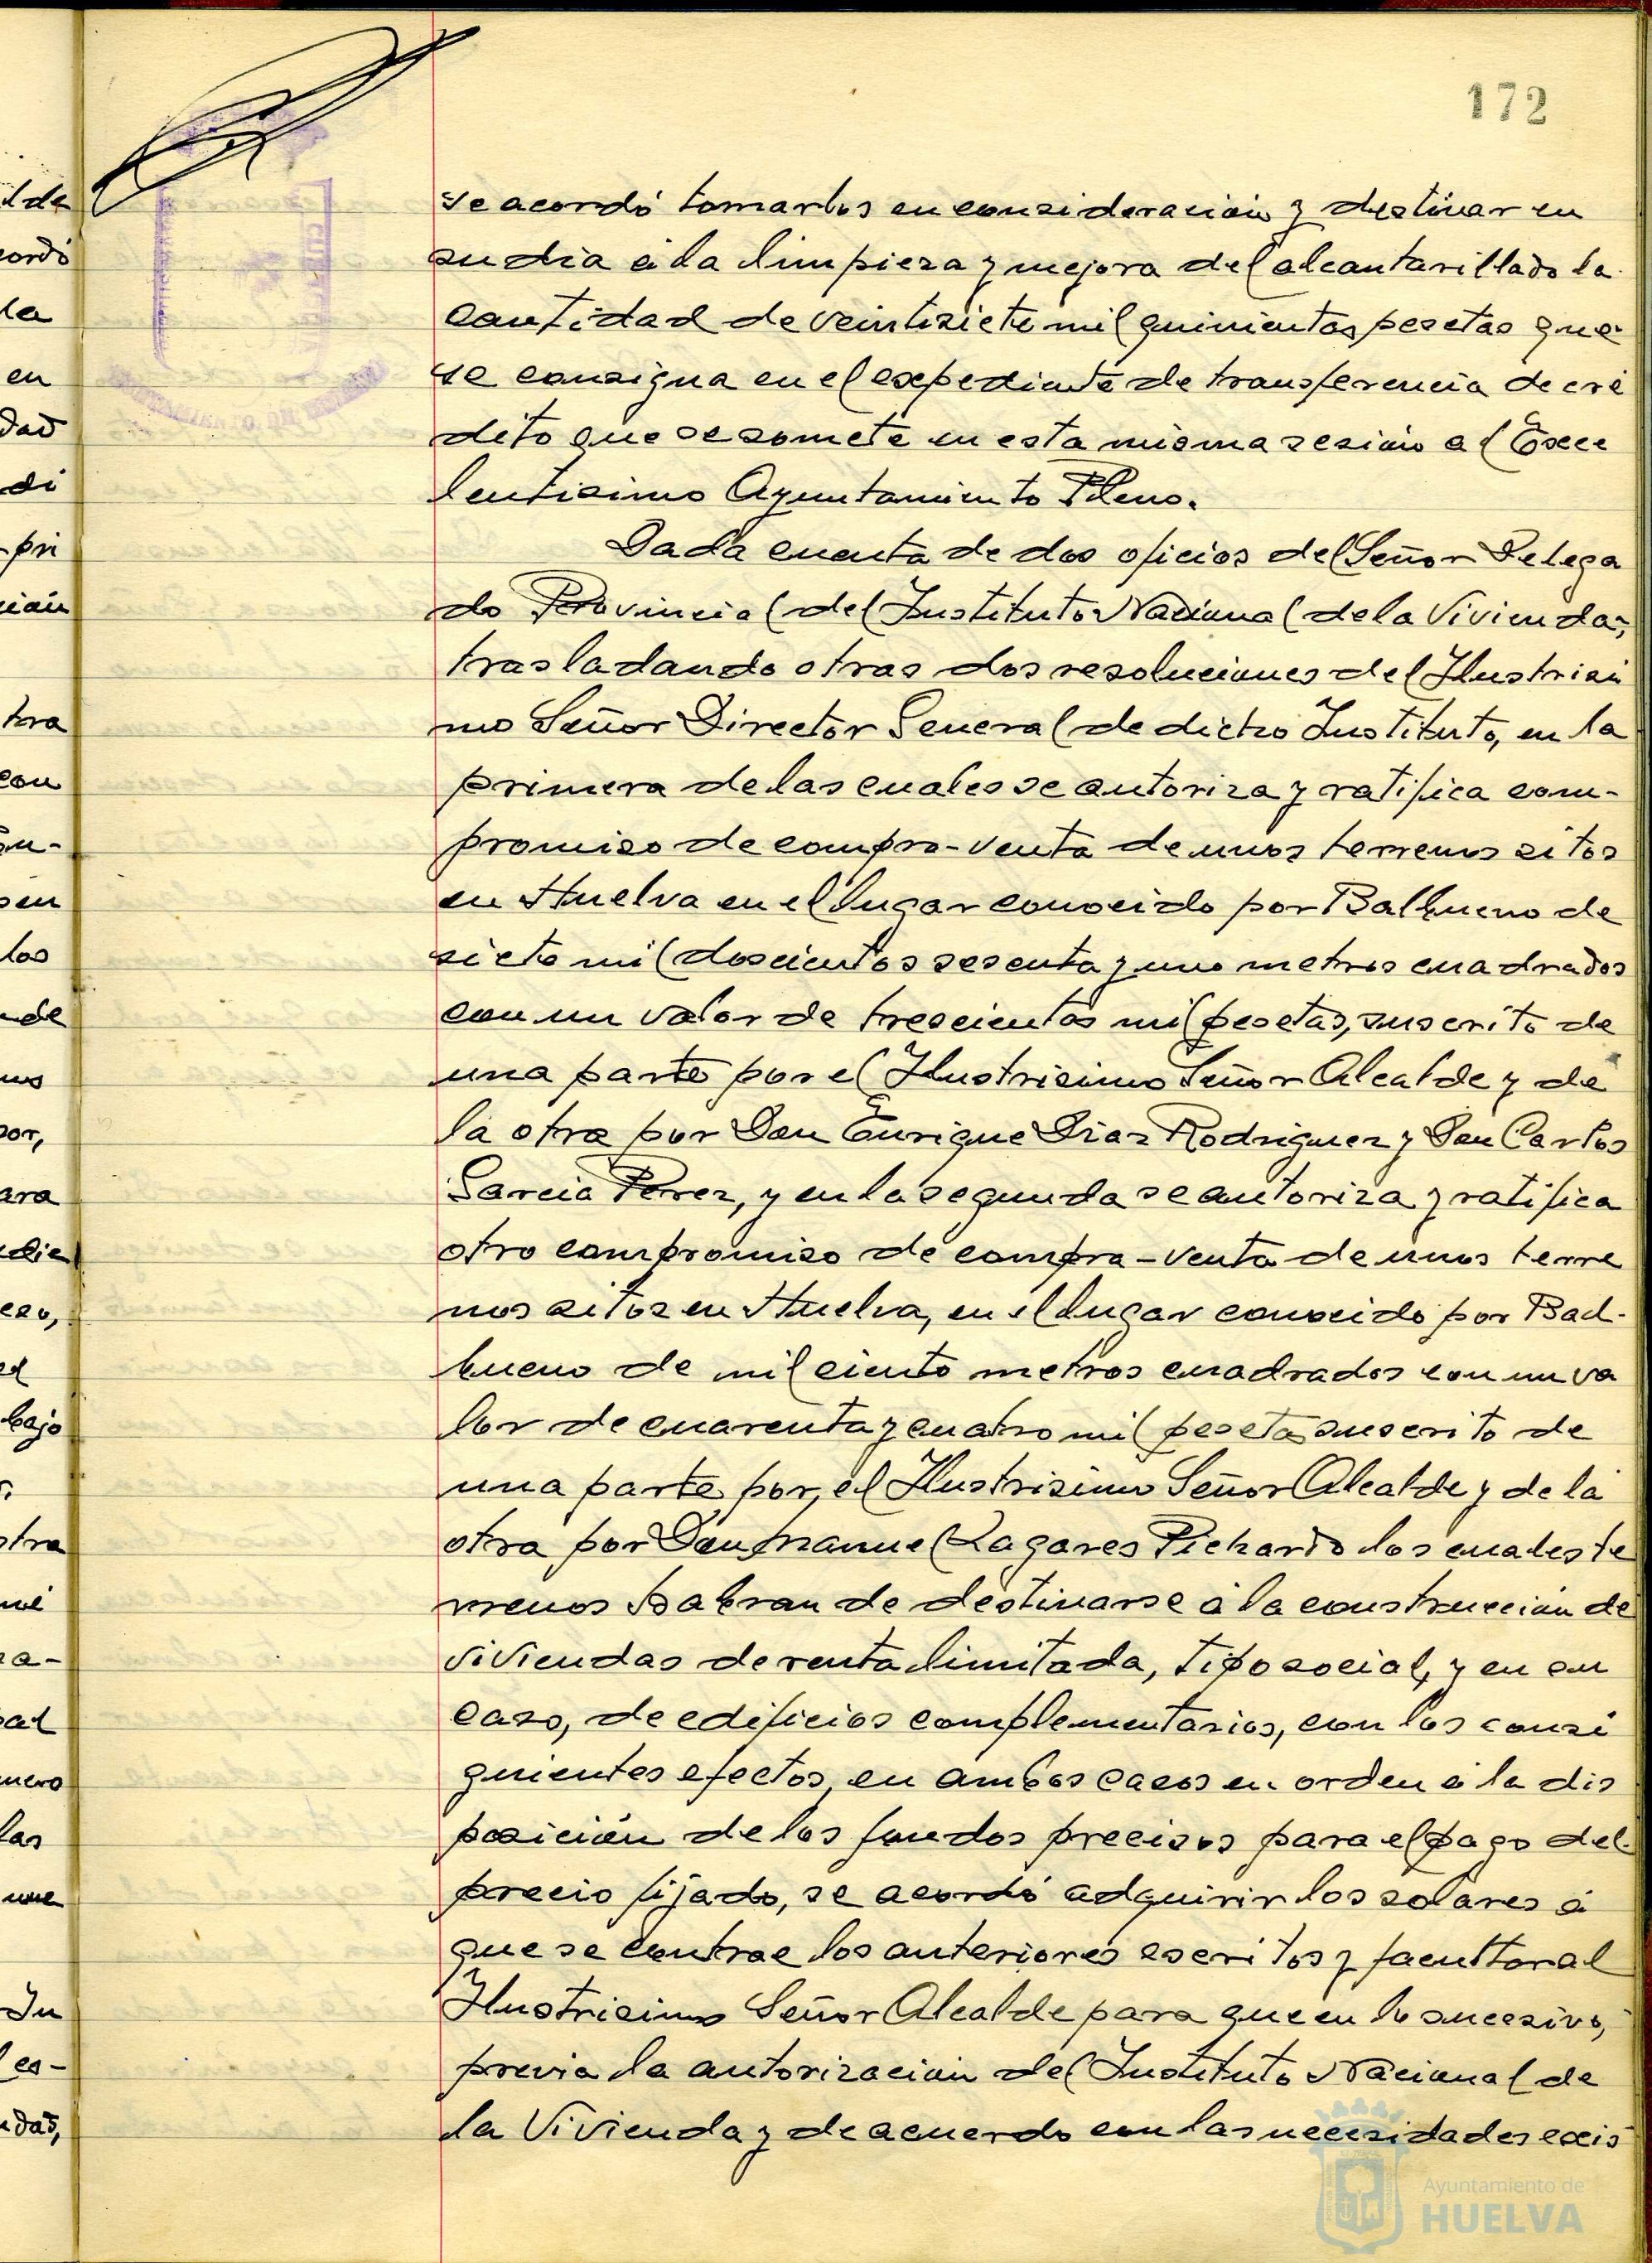 172
se acordó tomarlos en consideración y destinar en
su dia á la limpieza y mejora del alcantarillado la
cantidad de veintisiete mil quinientas pesetas que
se consigna en el expediente de transferencia de cré
dito que se somete en esta misma sesión al Exce
lentisimo Ayuntamiento Pleno.
Dada cuenta de dos oficios del Señor Delega
do Provincial del Instituto Nacional de la Vivienda,
trasladando otras dos resoluciones del Ilustrisi
mo Señor Director General de dicho Instituto, en la
primera de las cuales se autoriza y ratifica com-
promiso de compra-venta de unos terrenos sitos
en Huelva en el lugar conocido por Balbueno de
siete mil doscientos sesenta y uno metros cuadrados
con un valor de trescientas mil pesetas, suscrito de
una parte por el Ilustrisimo Señor Alcalde y de
la otra por Don Enrique Diaz Rodriguez y Don Carlos
Garcia Perez, y en la segunda se autoriza y ratifica
otro compromiso de compra-venta de unos terre
nos sitos en Huelva, en el lugar conocido por Bad-
bueno de mil ciento metros cuadrados con un va
lor de cuarenta y cuatro mil pesetas suscrito de
una parte por, el Ilustrisimo Señor Alcalde y de la
otra por Don Manuel Lagares Pichardo los cuales te
rrenos habran de destinarse á la construcción de
viviendas de renta limitada, tipo social, y en su
caso, de edificios complementarios, con los consi
guientes efectos, en ambos casos en orden á la dis
posición de los fondos precisos para el pago del
precio fijado, se acordó adquirir los solares á
que se contrae los anteriores escritos y facultar al
Ilustrisimo Señor Alcalde para que en lo sucesivo,
previa la autorización del Instituto Nacional de
la Vivienda y de acuerdo con las necesidades exis
Ayuntamiento de
HUELVA